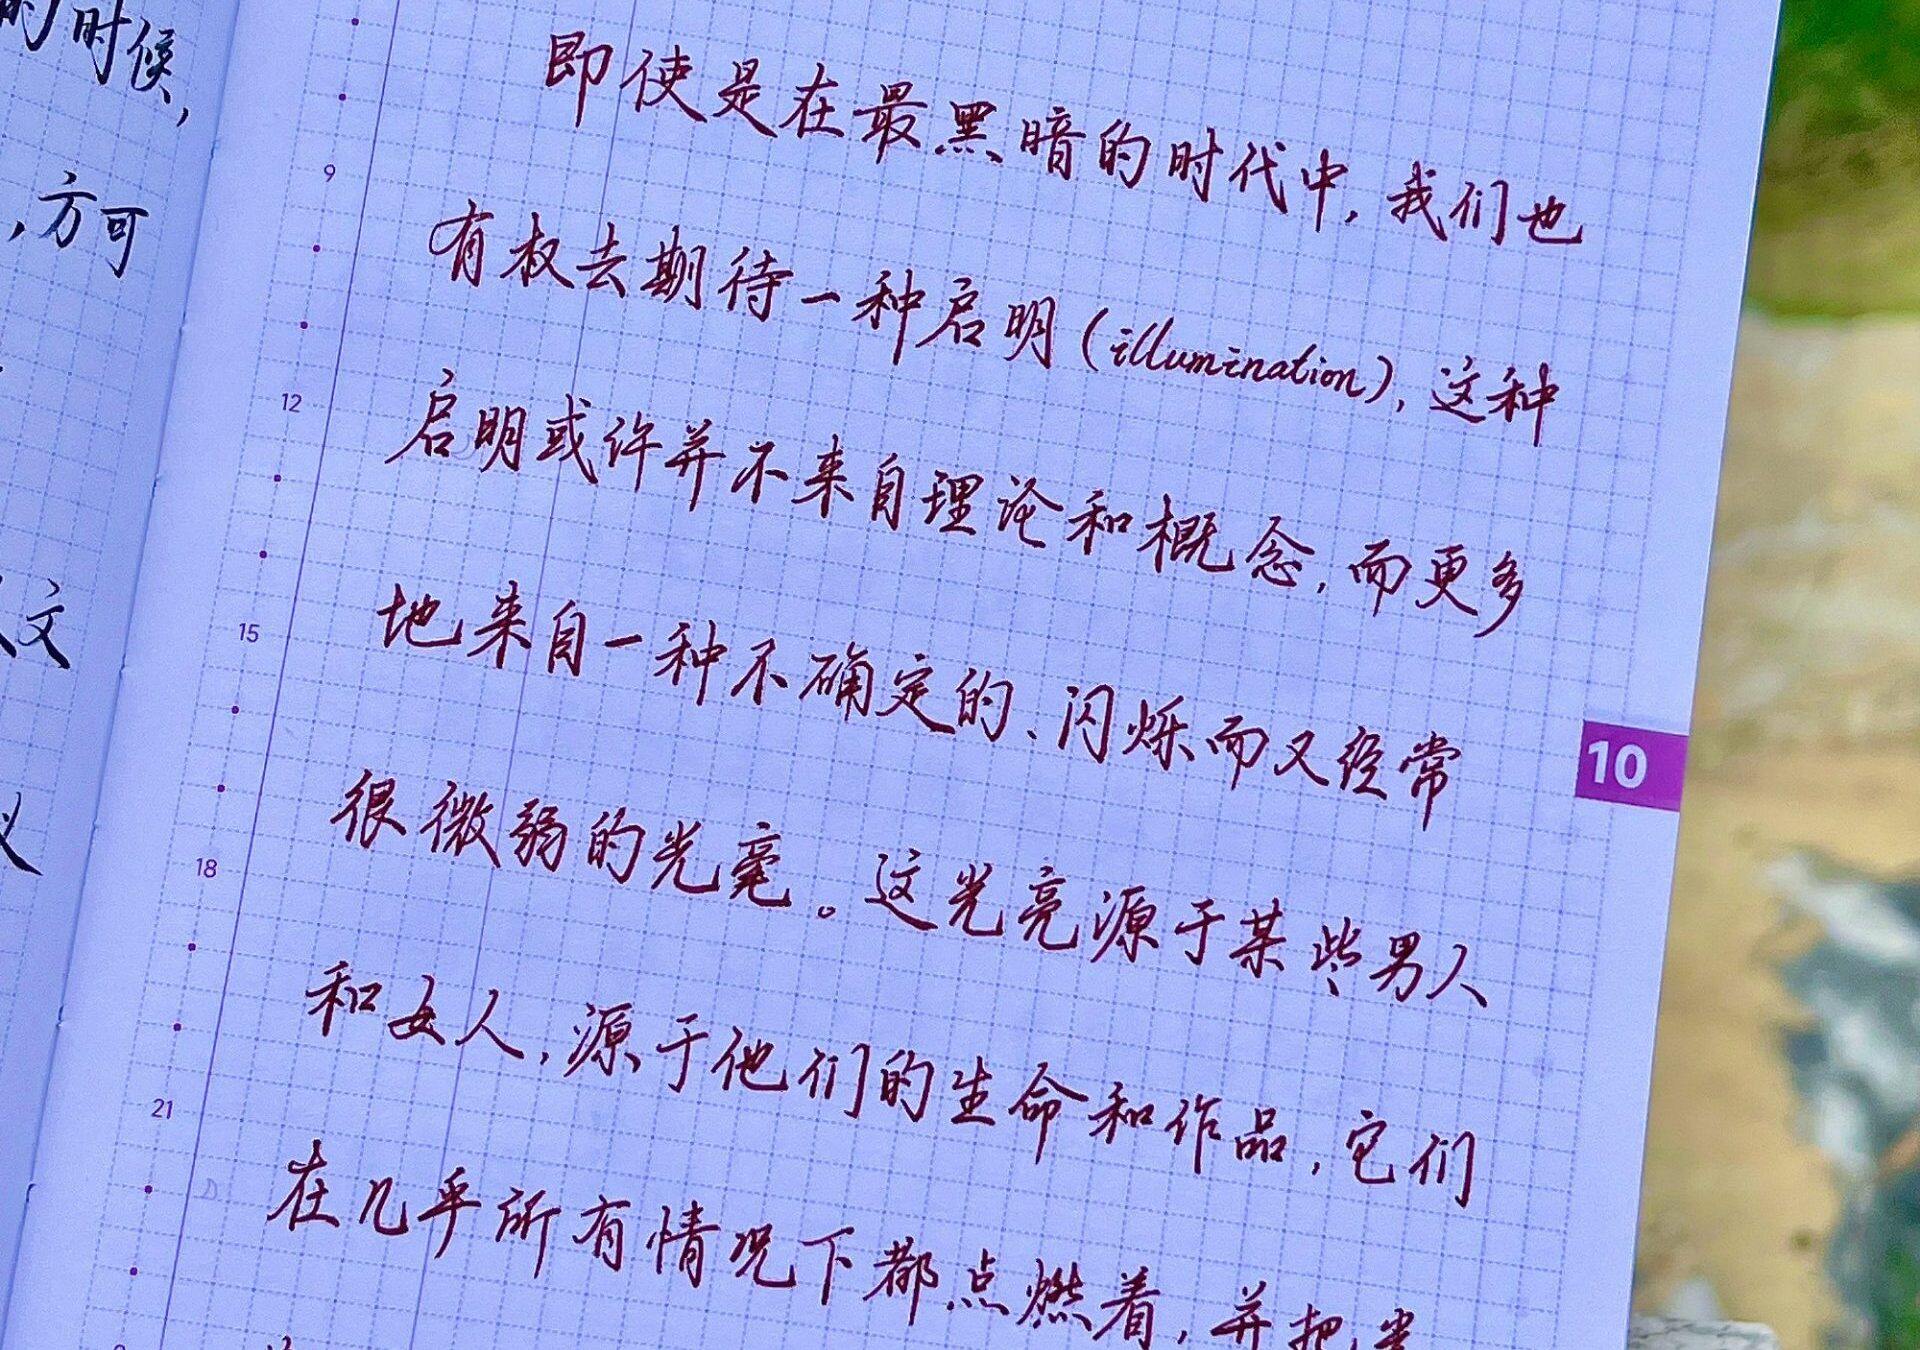 的时候,
,方可
文
义
即使是在最黑暗的时代中,我们也
有权去期待一种启明(illumination),这种
启明或许并不来自理论和概念,而更多
地来自一种不确定的、闪烁而又经常
很微弱的光亮。这光亮源于某些男人
和女人,源于他们的生命和作品,它们
在几乎所有情况下都点燃着,并把光
9
12
15
18
21
10